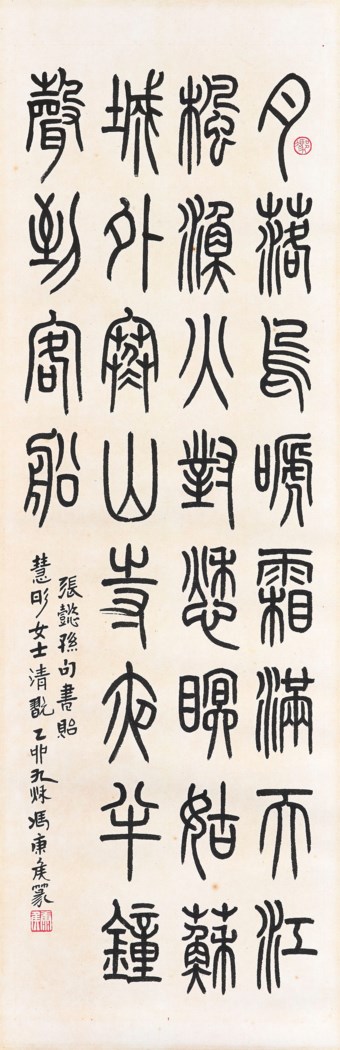 月落烏嗁霜滿天江
楓漁火對愁眠姑蘇
城外寒山寺夜半鐘
聲到客船
張懿孫句書貽
慧彤女士清翫乙卯九秋馮康侯篆